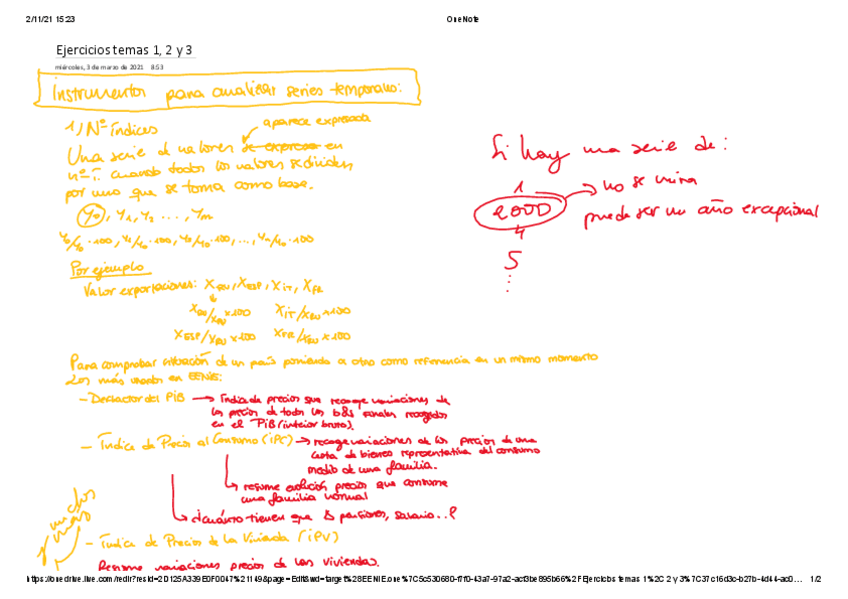 2/11/21 15:23
OneNote
Ejercicios temas 1, 2 y 3
miércoles, 3 de marzo de 2021 8:53
Instrumentos para analizar series temporales:
1) Nº índices
aparece expresada
Una serie de valores se expresa en
nº í. cuando todos los valores se dividen
por uno que se toma como base.
Y0, Y1, Y2 ..., Yn
Y0/Y0 · 100, Y1/Y0 · 100, Y2/Y0 · 100, ..., Yn/Y0 · 100
Por ejemplo
Valor exportaciones: XEU, XESP, XIT, XFR
XEU/XEU × 100 XIT/XEU × 100
XESP/XEU × 100 XFR/XEU × 100
Para comprobar situación de un país poniendo a otro como referencia en un mismo momento
Los más usados en EENIE:
- Deflactor del PiB → Índice de precios que recoge variaciones de
los precios de todos los b&s finales recogidos
en el PiB (interior bruto).
- Índice de Precios al Consumo (iPC) → recoge variaciones de los precios de una
cesta de bienes representativa del consumo
medio de una familia.
↳ resume evolución precios que consume
una familia normal
↳ ¿cuánto tienen que pensiones, salario..?
muchos
más
- Índice de Precios de la Vivienda (iPV)
Resume variaciones precios de las viviendas.
Si hay una serie de:
1
2000 → no se mira
puede ser un año excepcional
4
5
⋮
https://onedrive.live.com/redir?resid=2D125A339E0F0047%21149&page=Edit&wd=target%28EENIE.one%7C5c530680-f7f0-43a7-97a2-acf3be895b66%2FEjercicios temas 1%2C 2 y 3%7C37c16d3c-b27b-4d44-ac0... 1/2